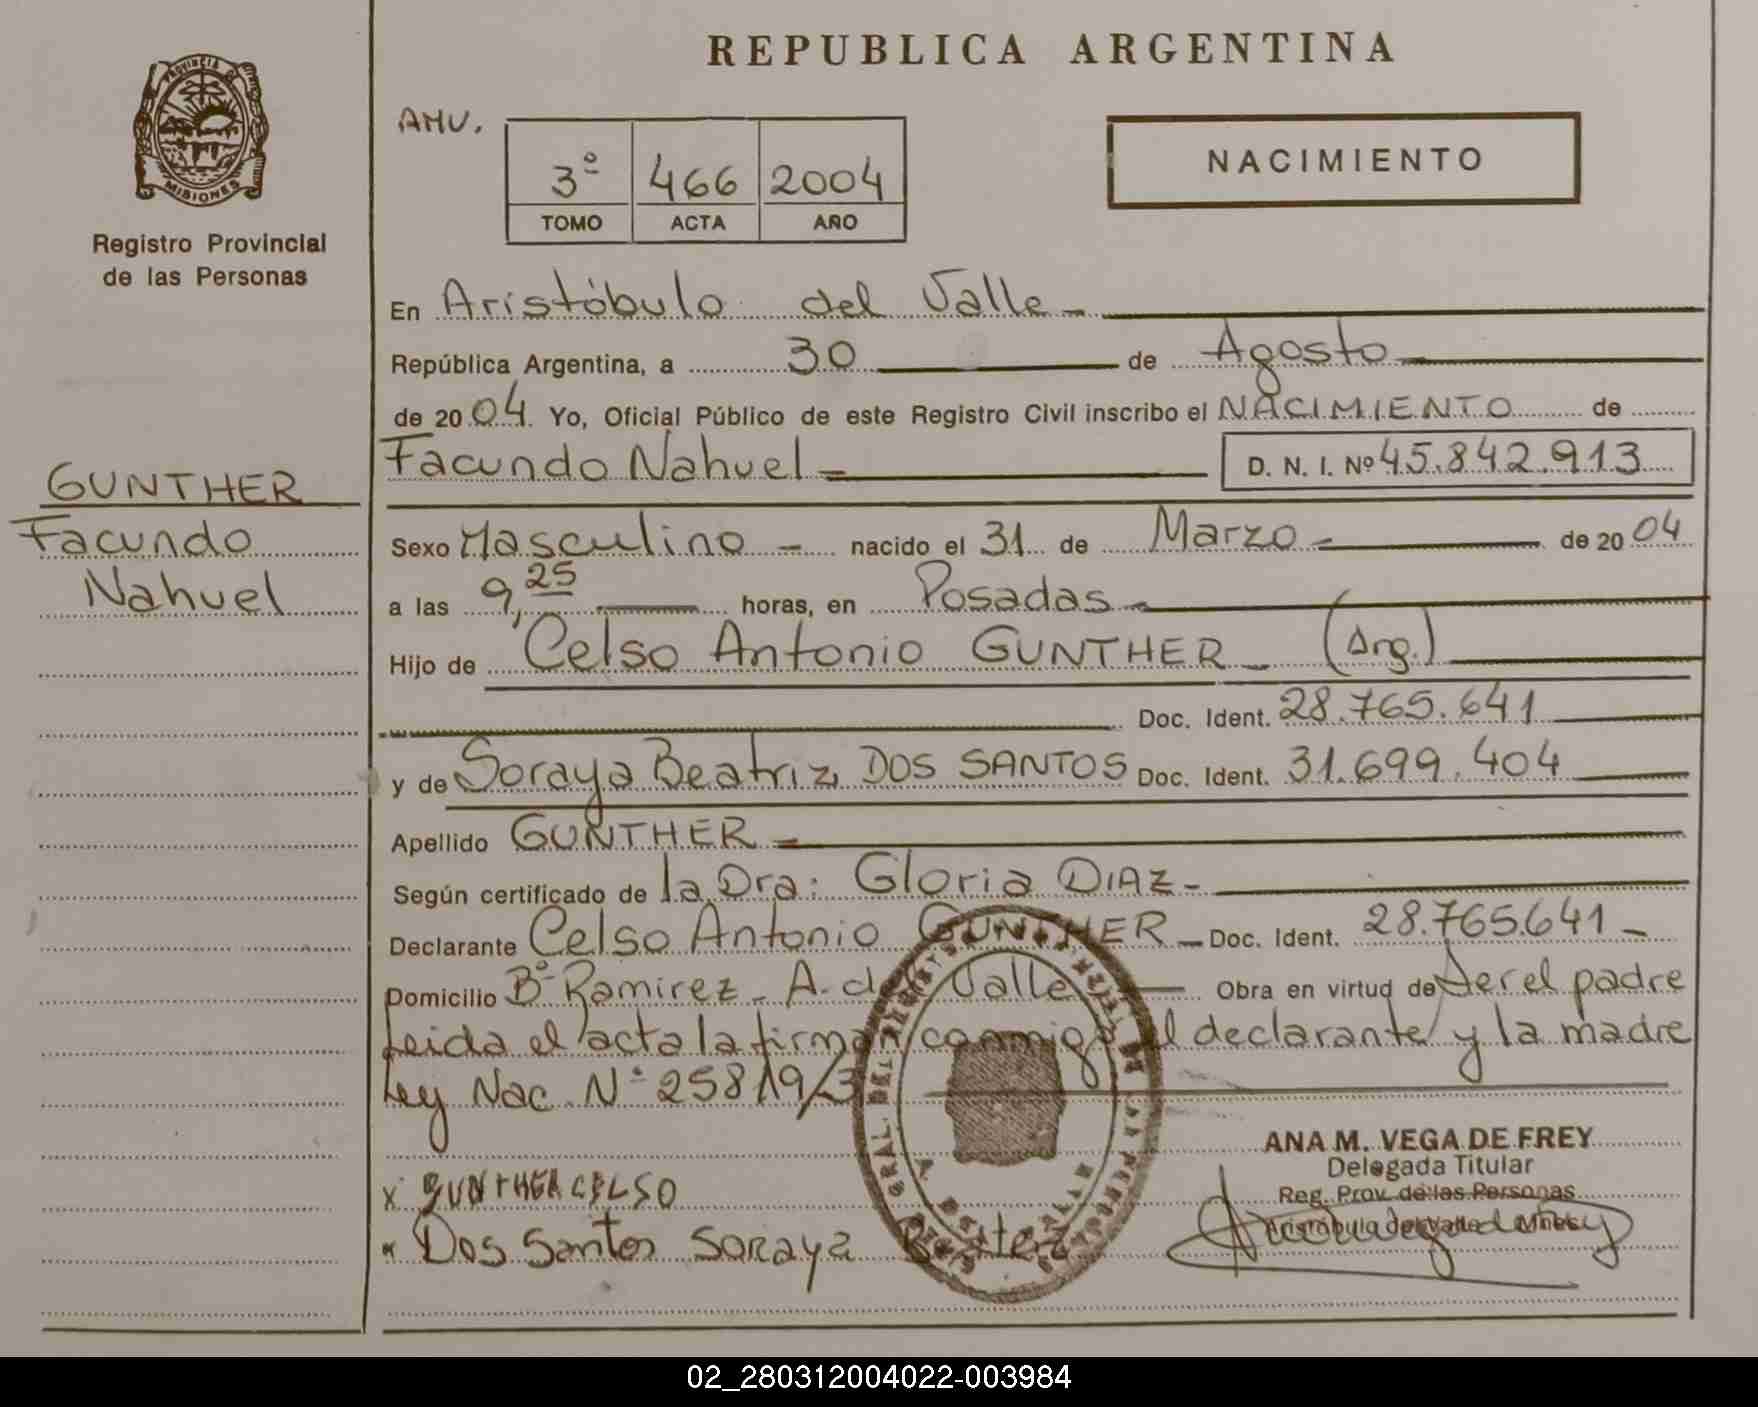 REPUBLICA ARGENTINA
PROVINCIA DE
MISIONES
Registro Provincial
de las Personas
AMU.
3º 466 2004
TOMO ACTA AÑO
NACIMIENTO
En Aristóbulo del Valle
República Argentina, a 30 de Agosto
de 2004. Yo, Oficial Público de este Registro Civil inscribo el NACIMIENTO de
Facundo Nahuel D. N. I. Nº 45.842.913
GUNTHER
Facundo
Nahuel
Sexo Masculino - nacido el 31 de Marzo - de 2004
a las 9,25 horas, en Posadas
Hijo de Celso Antonio GUNTHER - (Arg.)
Doc. Ident. 28.765.641
y de Soraya Beatriz DOS SANTOS Doc. Ident. 31.699.404
Apellido GUNTHER
Según certificado de la Dra: Gloria DIAZ -
Declarante Celso Antonio GUNTHER - Doc. Ident. 28.765.641 -
Domicilio Bº Ramirez - A. del Valle Obra en virtud de ser el padre
Leida el acta la firman conmigo el declarante y la madre
Ley Nac. Nº 25819/3
ANA M. VEGA DE FREY
Delegada Titular
Reg. Prov. de las Personas
Aristóbulo del Valle - Mnes.
x GUNTHER CELSO
x Dos Santos Soraya
02_280312004022-003984